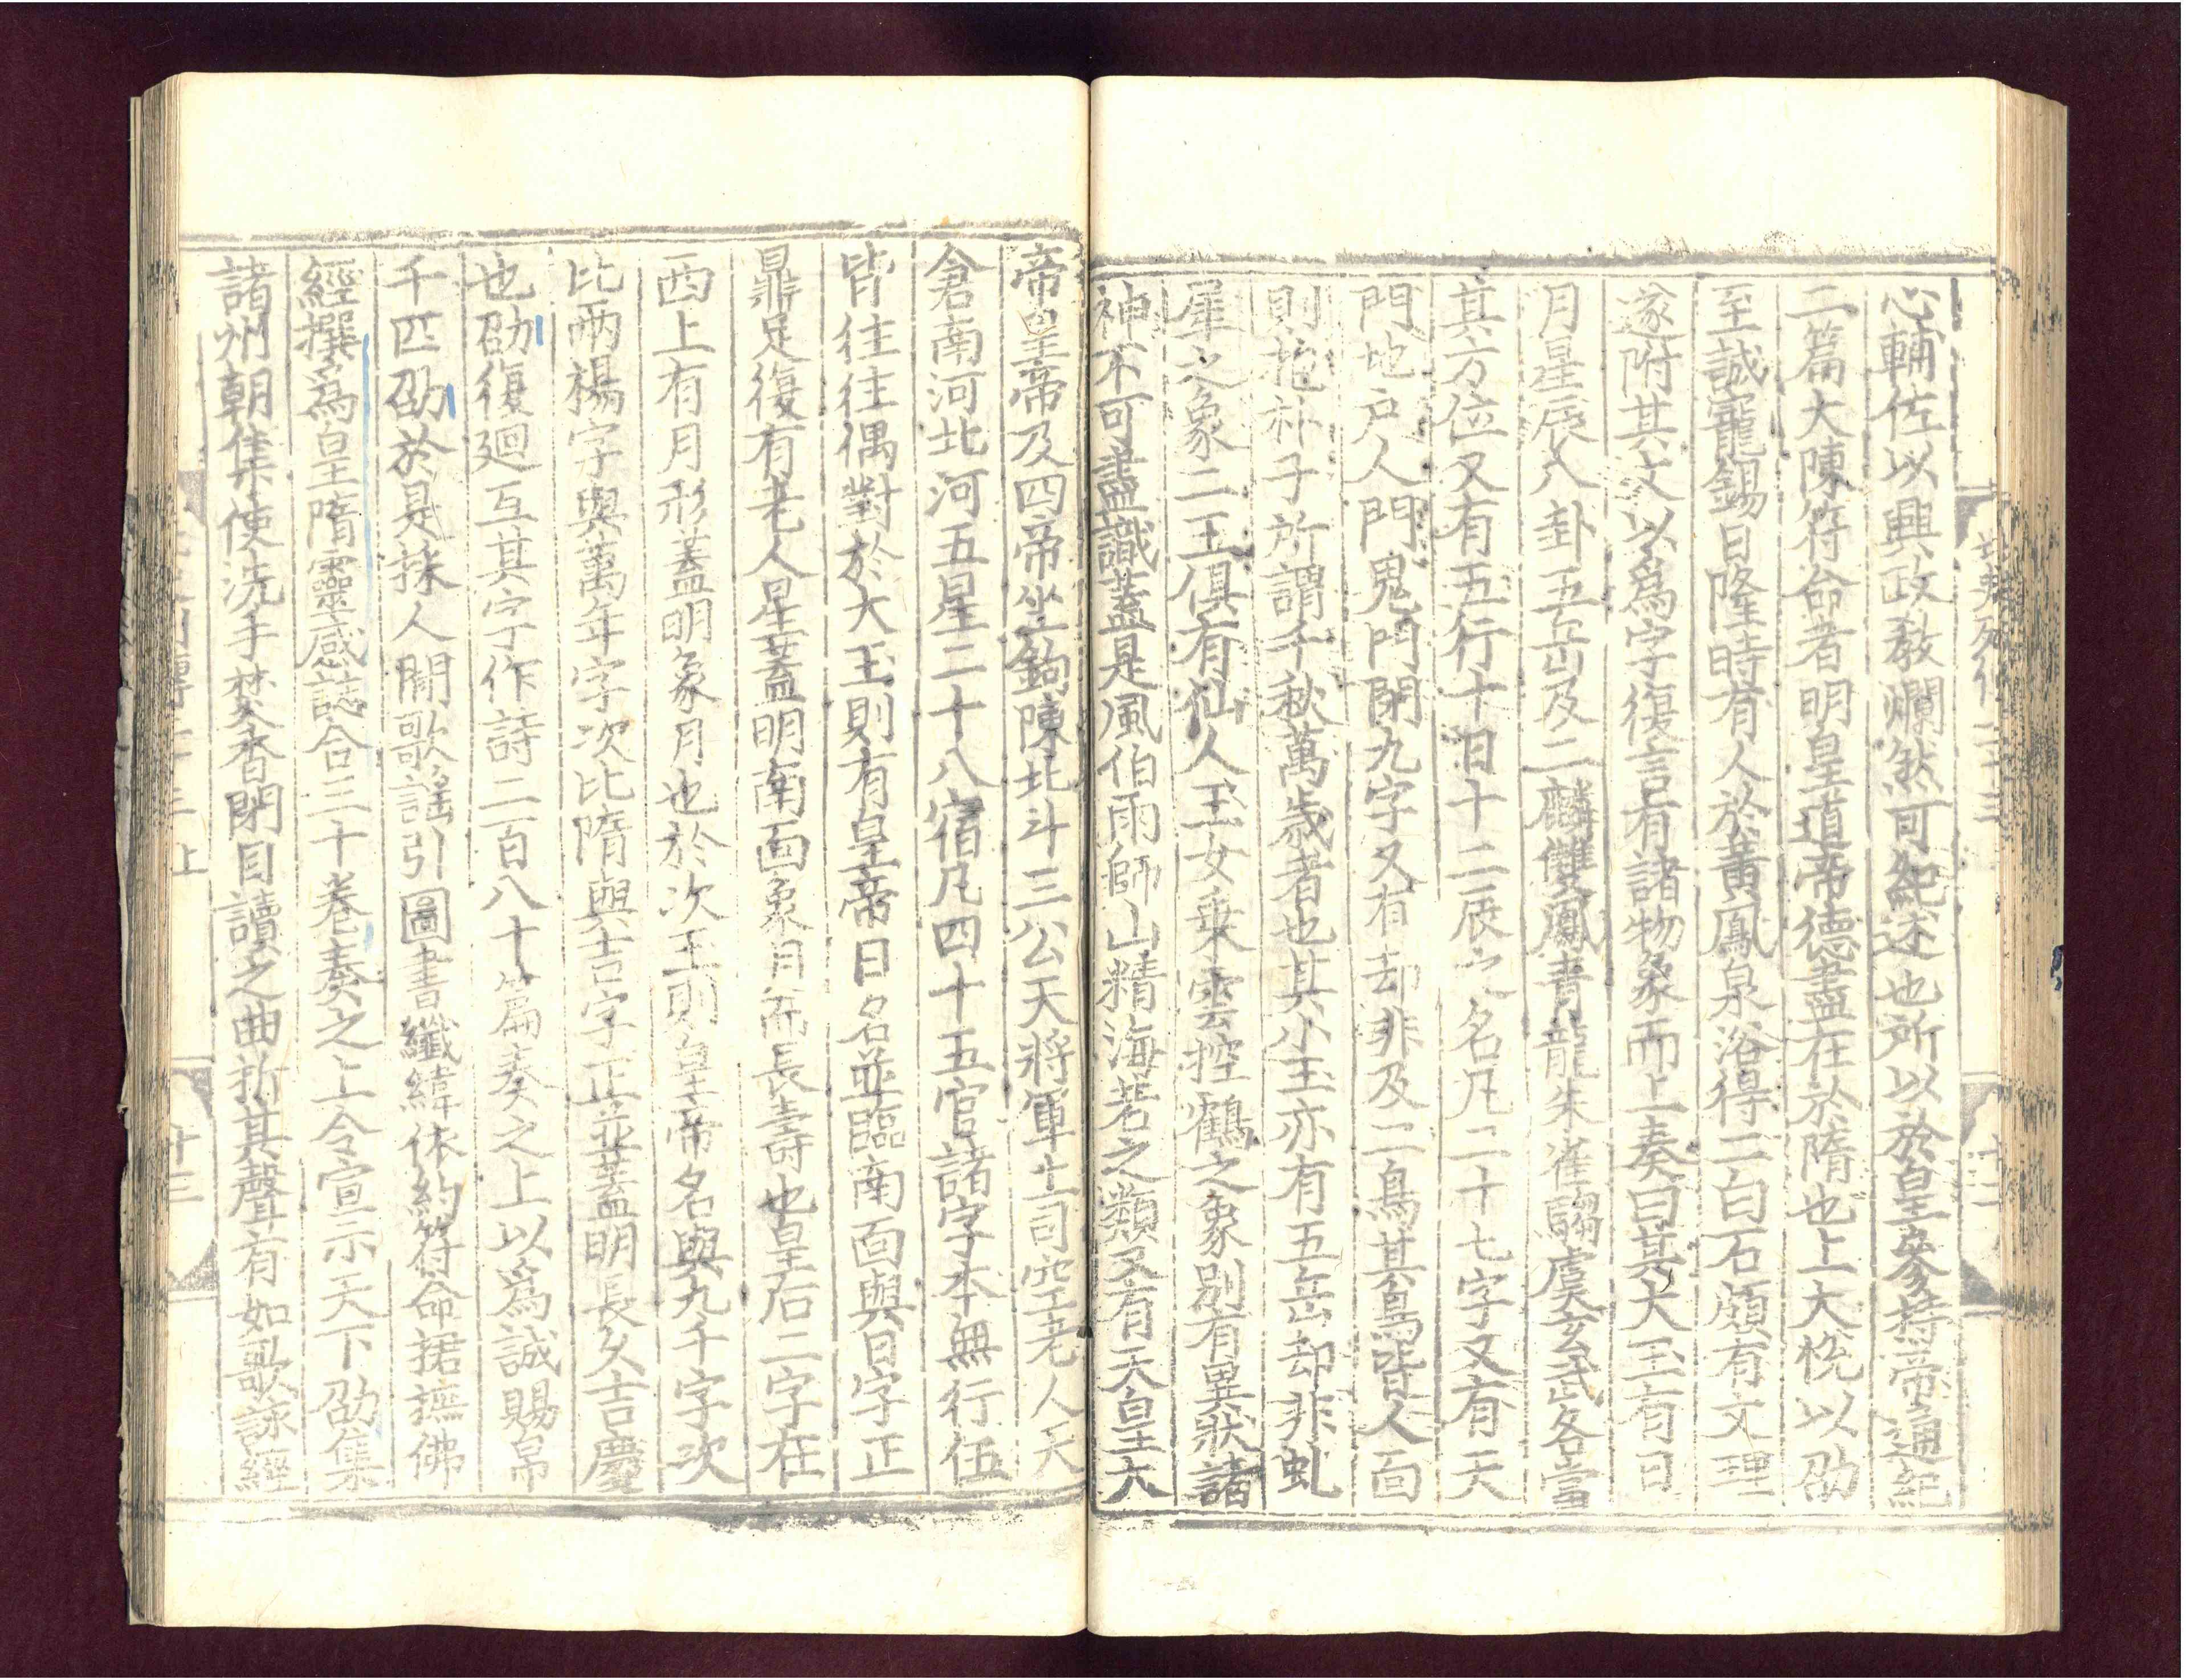 心輔佐以興政教爛然可紀述也所以於皇參持帝通紀
二篇大陳符命者明皇道帝德盡在於隋也上大悅以劭
至誠寵錫日隆時有人於黄鳳泉浴得二白石頗有文理
遂附其文以爲字復言有諸物象而上奏曰其大玉有日
月星辰八卦五岳及二麟雙鳳青龍朱雀騶虞玄武各當
其方位又有五行十日十二辰之名凡二十七字又有天
門地戶人門鬼門閉九字又有却非及二鳥其鳥皆人面
則抱朴子所謂千秋萬歲者也其小玉亦有五岳却非虬
犀之象二玉俱有仙人玉女乗雲控鶴之象別有異狀諸
神不可盡識蓋是風伯雨師山精海若之類又有天皇大
帝皇帝及四帝坐鉤陳北斗三公天將軍土司空老人天
倉南河北河五星二十八宿凡四十五官諸字本無行伍
皆往往偶對於大玉則有皇帝日名並臨南面與日字正
鼎足復有老人星蓋明南面象月而長壽也皇后二字在
西上有月形蓋明象月也於次玉則皇帝名與九千字次
比兩楊字與萬年字次比隋與吉字正並蓋明長久吉慶
也劭復廻互其字作詩二百八十篇奏之上以爲誠賜帛
千匹劭於是採人間歌謡引圖書纎緯依約符命捃撫佛
經撰爲皇隋靈感誌合三十卷奏之上令宣示天下劭集
諸州朝集使洗手焚香閉目讀之曲折其聲有如歌詠經